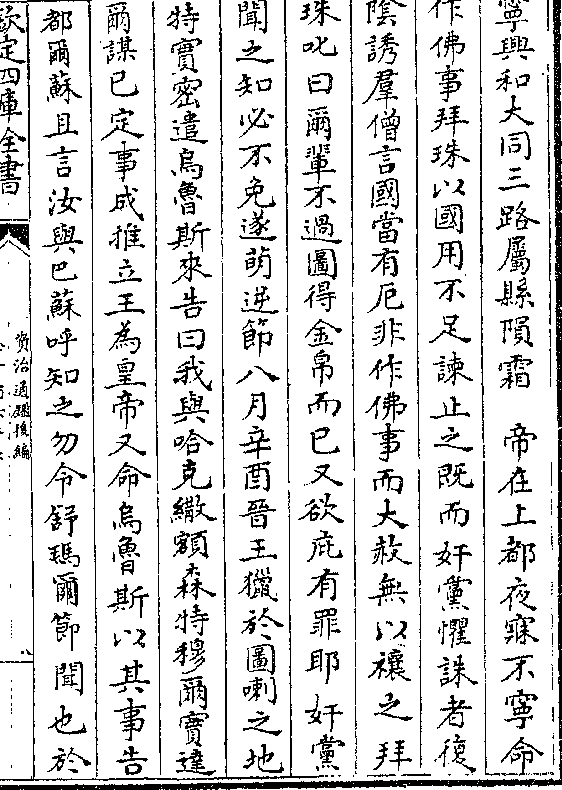 寧興和大同三路屬縣隕霜　帝在上都夜寐不寧命
作佛事拜珠以國用不足諫止之既而奸黨懼誅者復
陰誘羣僧言國當有厄非作佛事而大赦無以禳之拜
珠叱曰爾輩不過圖得金帛而已又欲庇有罪耶奸黨
聞之知必不免遂萌逆節八月辛酉晉王獵於圖喇之地
特實密遣烏魯斯來告曰我與哈克繖額森特穆爾實達
爾謀已定事成推立王為皇帝又命烏魯斯以其事告
都爾蘇且言汝與巴蘇呼知之勿令舒瑪爾節聞也於
欽定四庫全書
資治通鑑後編